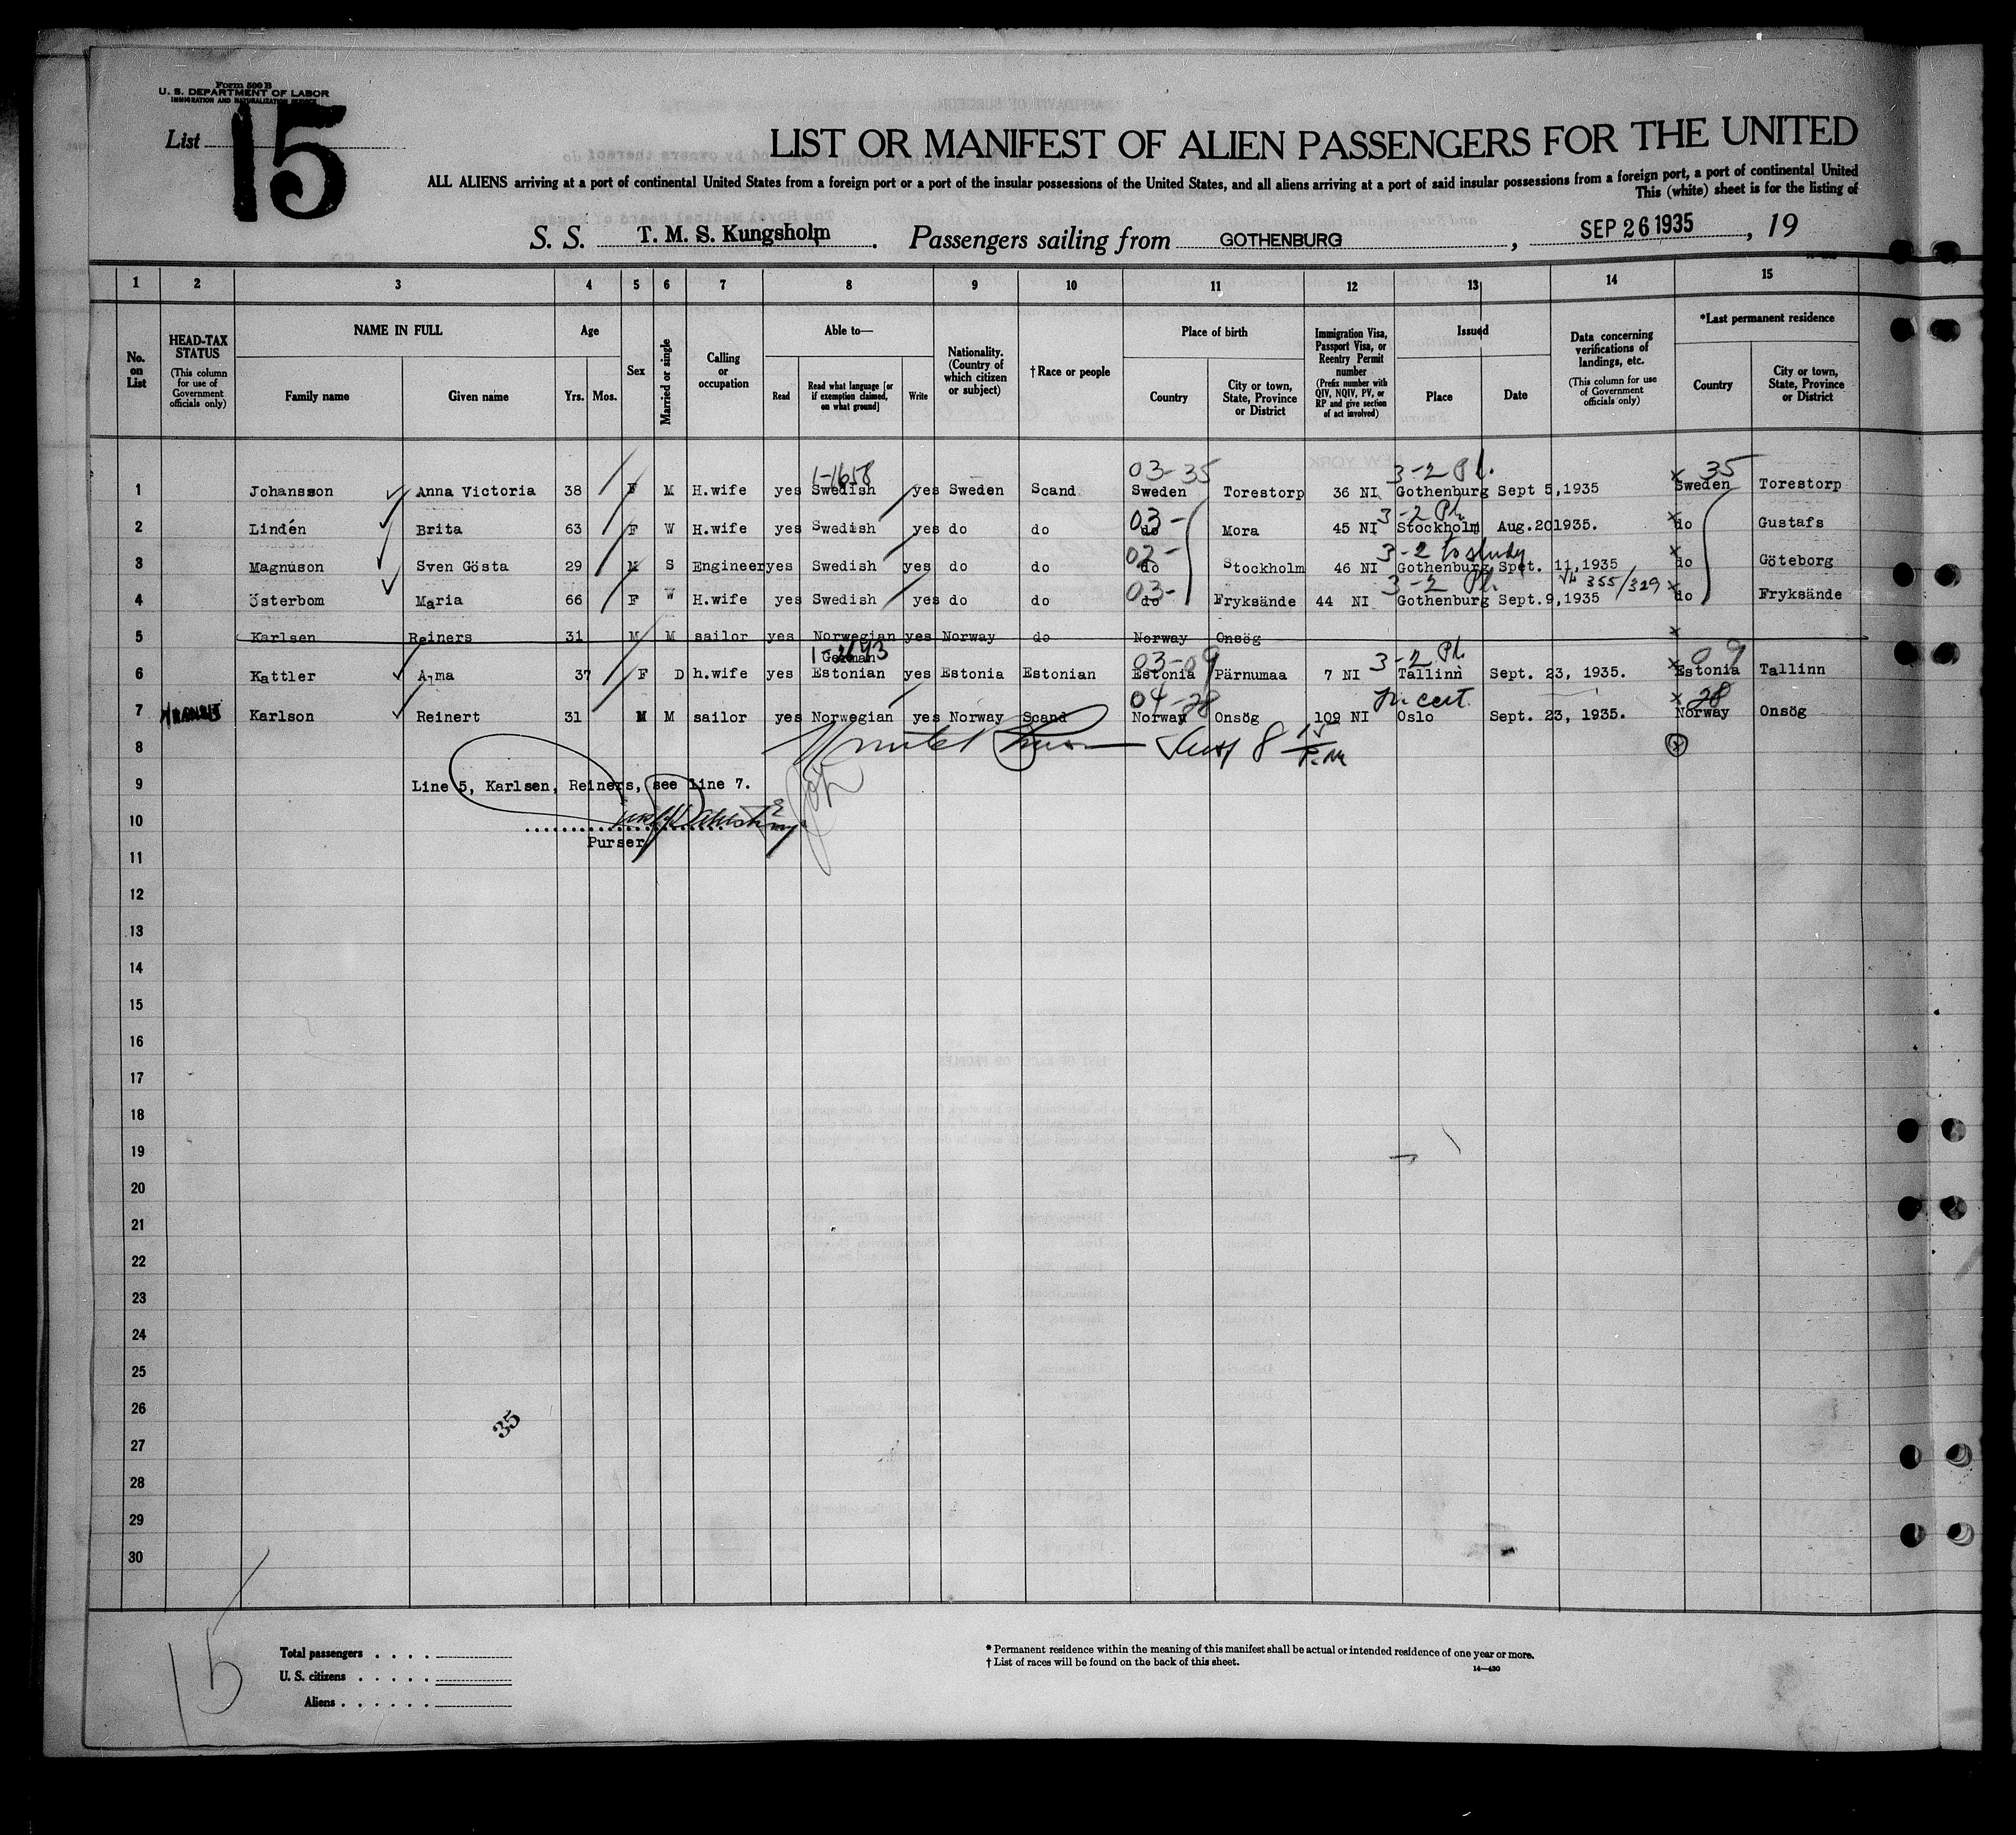 Form 500 B
U. S. DEPARTMENT OF LABOR
IMMIGRATION AND NATURALIZATION SERVICE
List 15
LIST OR MANIFEST OF ALIEN PASSENGERS FOR THE UNITED
ALL ALIENS arriving at a port of continental United States from a foreign port or a port of the insular possessions of the United States, and all aliens arriving at a port of said insular possessions from a foreign port, a port of continental United
This (white) sheet is for the listing of
S. S. T. M. S. Kungsholm. Passengers sailing from GOTHENBURG, SEP 26 1935, 19
1 2 3 4 5 6 7 8 9 10 11 12 13 14 15
No. on List
HEAD-TAX STATUS (This column for use of Government officials only)
NAME IN FULL
Family name Given name
Age
Yrs. Mos.
Sex
Married or single
Calling or occupation
Able to—
Read Read what language [or if exemption claimed, on what ground] Write
Nationality. (Country of which citizen or subject)
† Race or people
Place of birth
Country City or town, State, Province or District
Immigration Visa, Passport Visa, or Reentry Permit number (Prefix number with QIV, NQIV, PV, or RP and give section of act involved)
Issued
Place Date
Data concerning verifications of landings, etc. (This column for use of Government officials only)
*Last permanent residence
Country City or town, State, Province or District
1-1658 03-35 3-2 Pl. x 35
1 Johansson Anna Victoria 38 F M H.wife yes Swedish yes Sweden Scand Sweden Torestorp 36 NI Gothenburg Sept 5,1935 Sweden Torestorp
03- 3-2 Pl. x
2 Lindén Brita 63 F W H.wife yes Swedish yes do do do Mora 45 NI Stockholm Aug.201935. do Gustafs
03- 3-2 to study x
3 Magnuson Sven Gösta 29 M S Engineer yes Swedish yes do do do Stockholm 46 NI Gothenburg Spet. 11,1935 do Göteborg
03- 3-2 Pl. 355/329 x
4 Österbom Maria 66 F W H.wife yes Swedish yes do do do Fryksände 44 NI Gothenburg Sept.9,1935 do Fryksände
5 Karlsen Reiners 31 M M sailor yes Norwegian yes Norway do Norway Onsög x
German 03-09 3-2 Pl. x 09
6 Kattler Alma 37 F D h.wife yes Estonian yes Estonia Estonian Estonia Pärnumaa 7 NI Tallinn Sept. 23, 1935. Estonia Tallinn
04-28 x 28
7 TRANSIT Karlson Reinert 31 M M sailor yes Norwegian yes Norway Scand Norway Onsög 109 NI Oslo Sept. 23, 1935. Norway Onsög
8 x
9 Line 5, Karlsen, Reiners, see line 7.
10
Purser
11
12
13
14
15
16
17
18
19
20
21
22
23
24
25
26
35
27
28
29
30
15
Total passengers
U. S. citizens
Aliens
* Permanent residence within the meaning of this manifest shall be actual or intended residence of one year or more.
† List of races will be found on the back of this sheet.
14—430